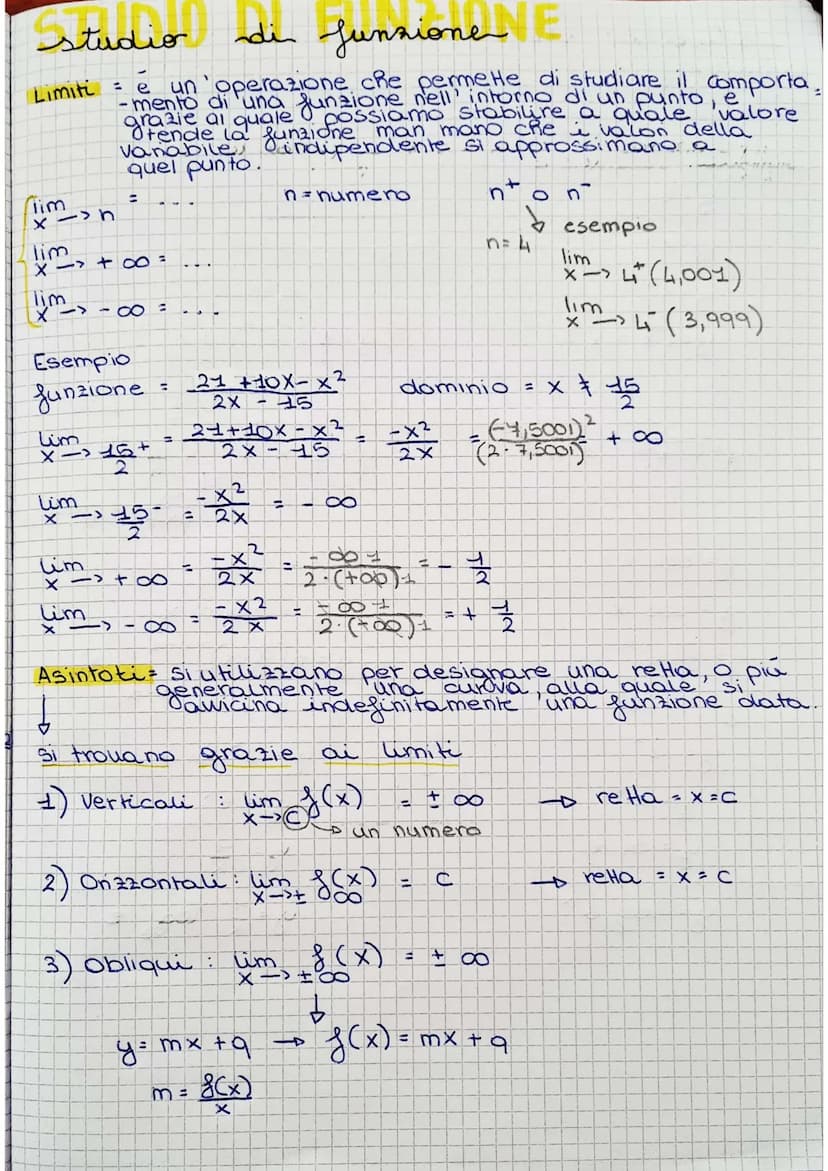 STUDIO DI FUNZIONE
studio di funzione
Limiti = è un'operazione che permette di studiare il comporta
-mento di una funzione nell'intorno di un punto, e
grazie al quale possiamo stabilire a quale valore
tende la funzione man mano che i valori della
variabile indipendente si approssimano a
quel punto.
lim x→n = ... n = numero n⁺ o n⁻
↓ esempio
n = 4
lim x→+∞ = ... lim x→4⁺ (4,001)
lim x→-∞ = ... lim x→4⁻ (3,999)
Esempio
funzione = (21+10x-x²)/(2x-15) dominio = x ≠ 15/2
lim x→15/2⁺ = (21+10x-x²)/(2x-15) = -x²/2x = (-7,5001)²/(2·7,5001) = +∞
lim x→15/2⁻ = -x²/2x = -∞
lim x→+∞ = -x²/2x = -∞ 1/2·(+∞)1 = -1/2
lim x→-∞ = -x²/2x = -∞ 1/2·(-∞)1 = +1/2
Asintoti = si utilizzano per designare una retta, o più
generalmente una curva, alla quale si
avvicina indefinitamente una funzione data.
↓
si trovano grazie ai limiti
1) Verticali : lim x→c f(x) = ±∞ → retta = x = c
→ un numero
2) Orizzontali : lim x→±∞ f(x) = c → retta = x = c
3) Obliqui : lim x→±∞ f(x) = ±∞
↓
y = mx + q → f(x) = mx + q
m = f(x)/x